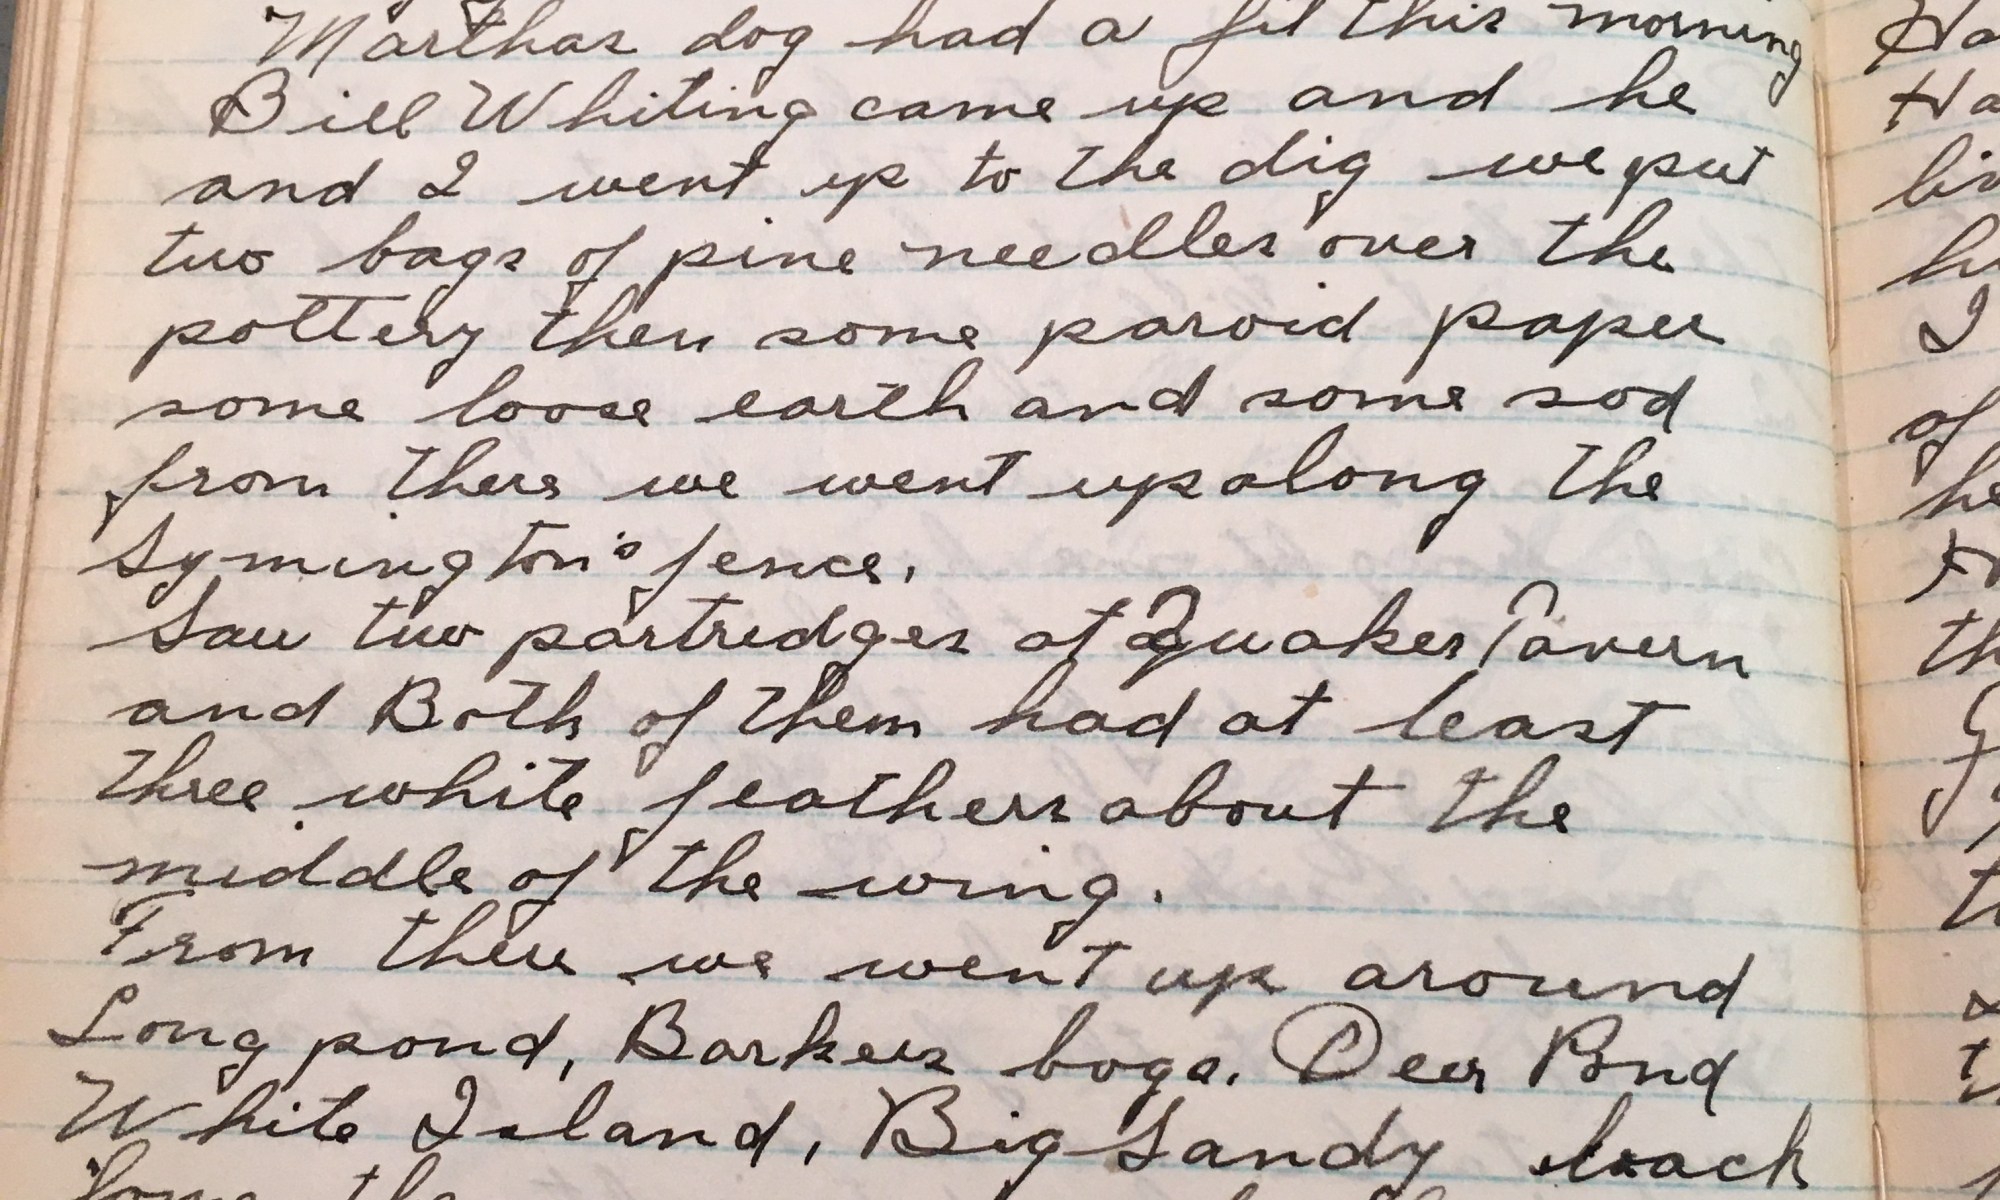 Marthas dog had a fit this morning
Bill Whiting came up and he
and I went up to the dig we put
two bags of pine needles over the
pottery then some paroid paper
some loose earth and some sod
from there we went up along the
Symington's fence.
Saw two partredges at Quaker Tavern
and Both of them had at least
three white feathers about the
middle of the wing.
From there we went up around
Long pond, Barkers bogs. Deer Pond
White Island, Big Sandy
Ha
Ha
I
of
he
th